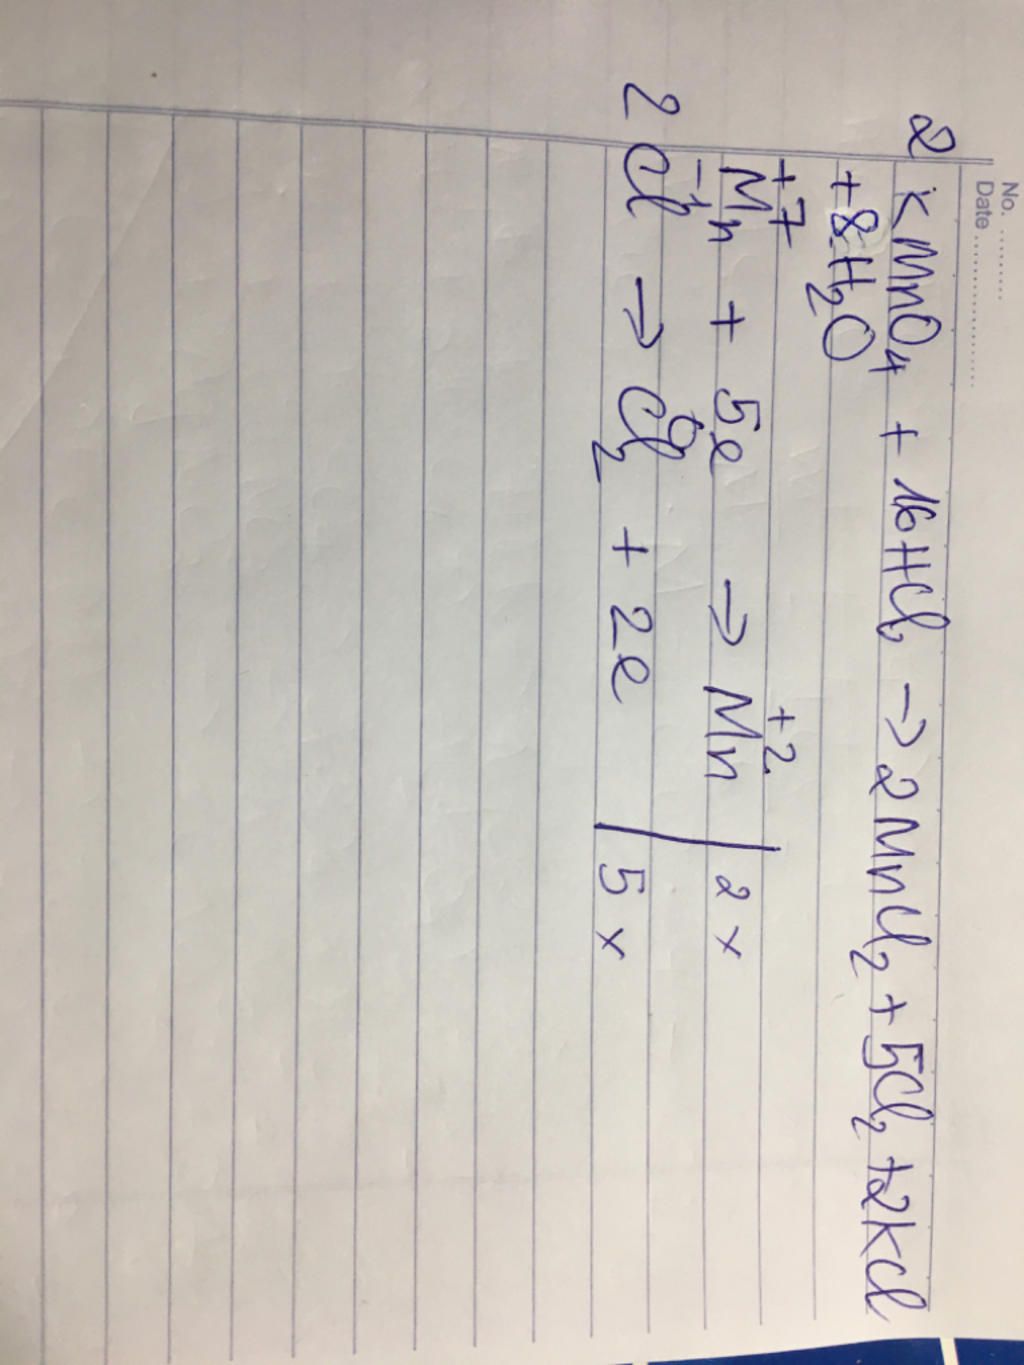 No. ..........
Date ......................
2 KMnO₄ + 16HCl, → 2MnCl₂ + 5Cl₂ + 2KCl
+ 8H₂O
+7 +2
Mn + 5e → Mn | 2 x
-1 0
2Cl → Cl₂ + 2e | 5 x